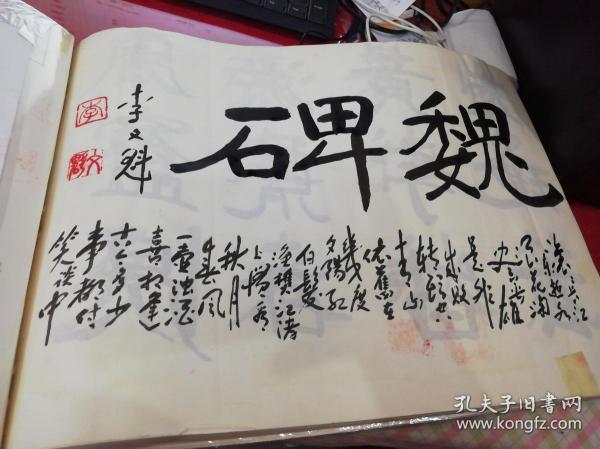 魏碑
李文魁
滚滚长江
东逝水
浪花淘
尽英雄
是非
成败
转头空
青山
依舊在
幾度
夕陽红
白髮
渔樵江渚
上惯看
秋月
春风
一壶浊酒
喜相逢
古今多少
事都付
笑谈中
李
孔夫子旧书网
www.kongfz.com